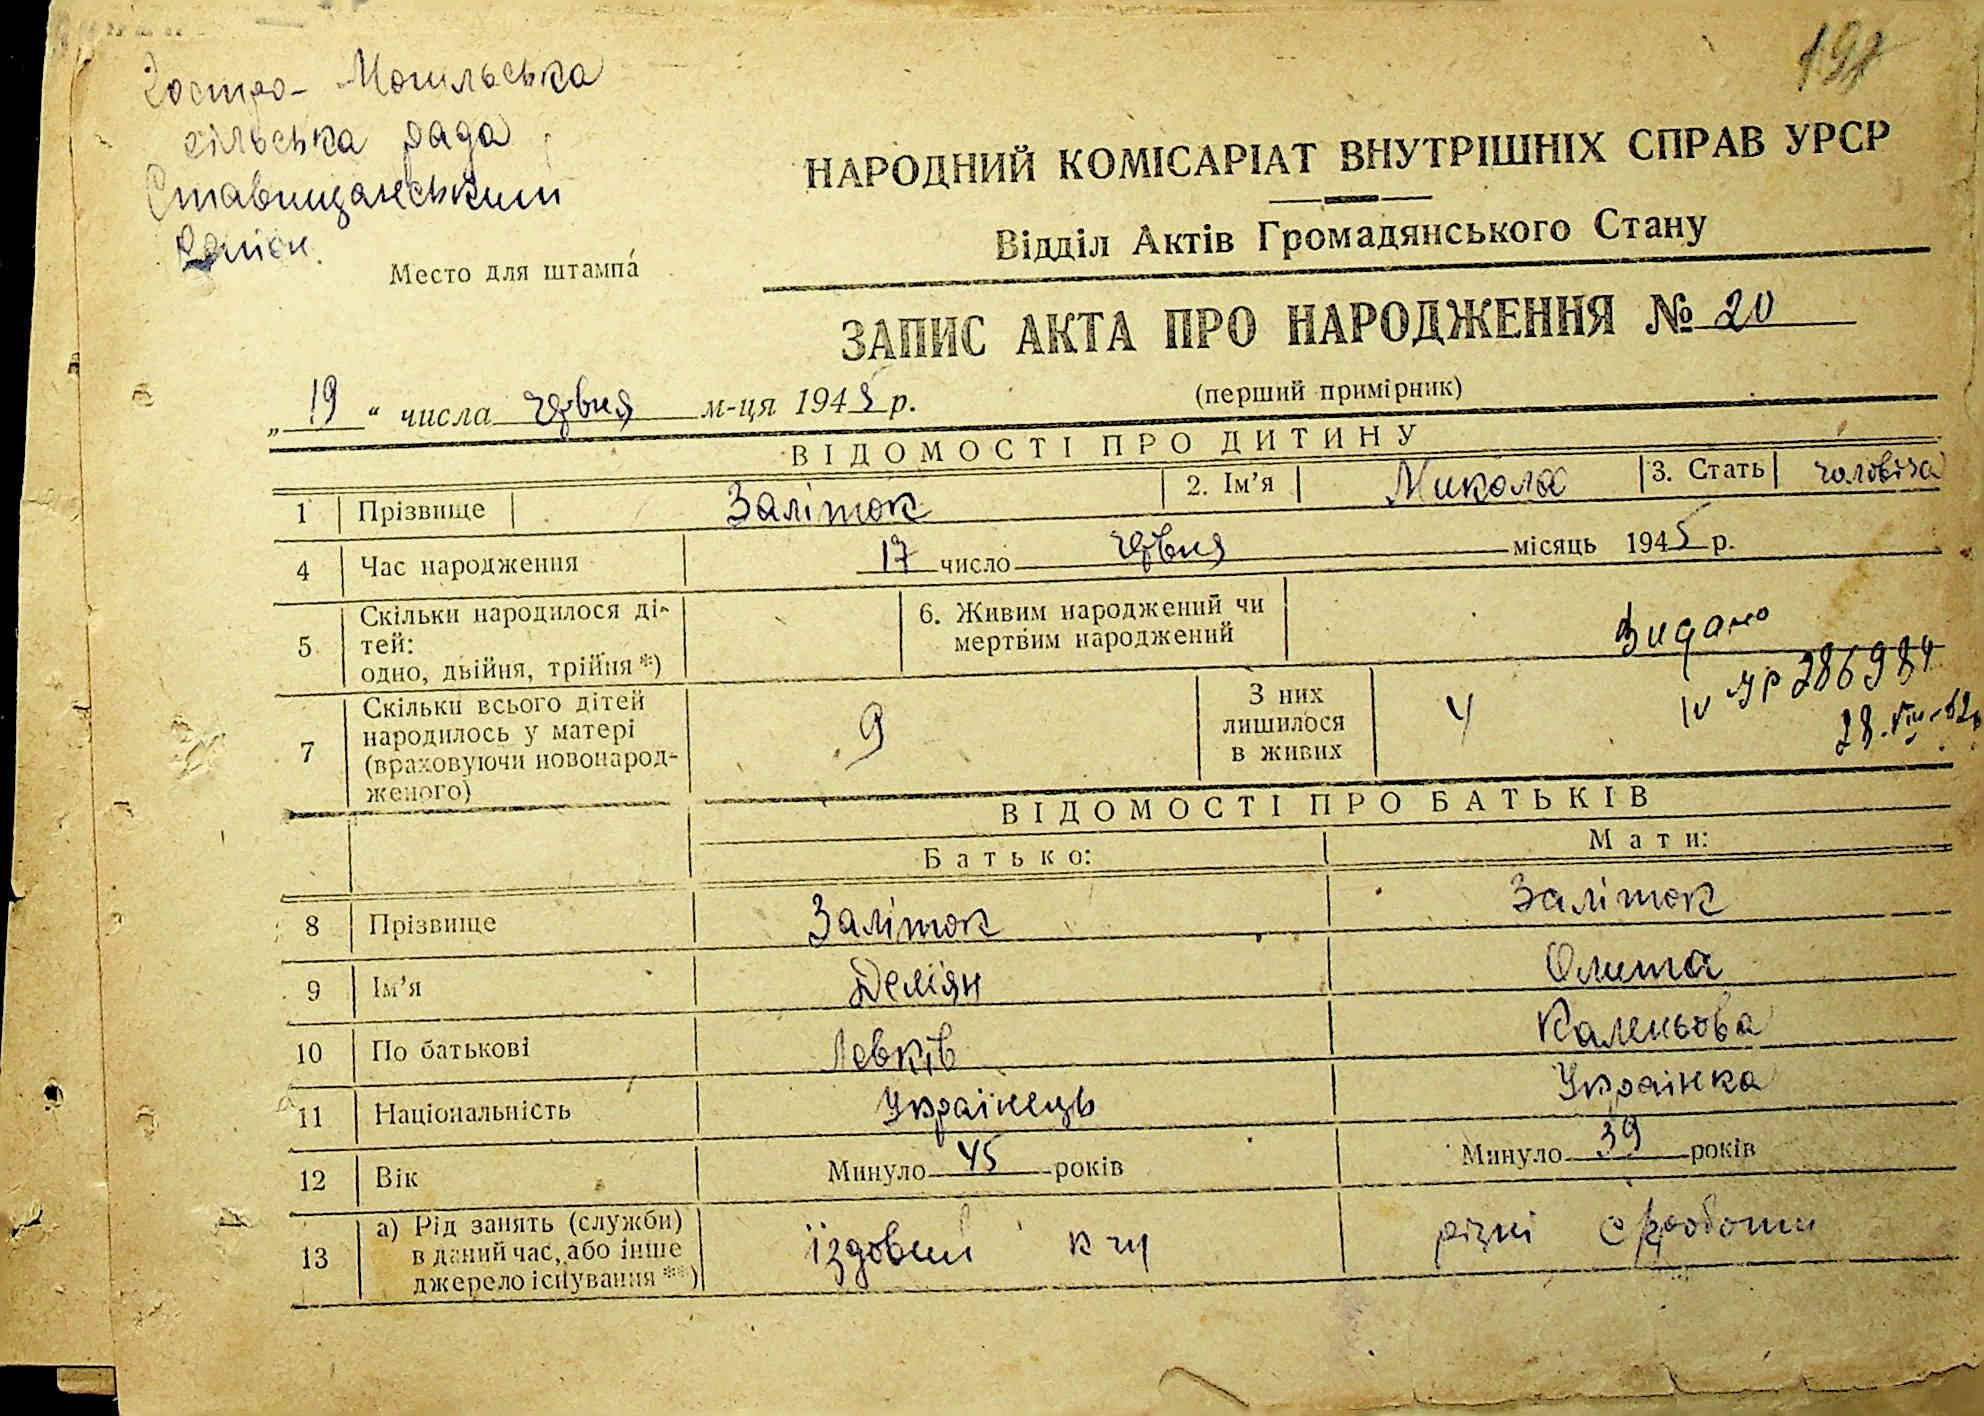 197
Гостро-Могильська
сільська рада
Ставищанський
Район.
Место для штампа
НАРОДНИЙ КОМІСАРІАТ ВНУТРІШНІХ СПРАВ УРСР
Відділ Актів Громадянського Стану
ЗАПИС АКТА ПРО НАРОДЖЕННЯ № 20
(перший примірник)
„ 19 “ числа червня м-ця 1945 р.
ВІДОМОСТІ ПРО ДИТИНУ
1 Прізвище Заліток 2. Ім'я Микола 3. Стать чоловіча
4 Час народження 17 число червня місяць 1945 р.
5 Скільки народилося ді-
тей:
одно, двійня, трійня *)
6. Живим народжений чи
мертвим народжений
Видано
IV УР 286984
28.VIII-62р
7 Скільки всього дітей
народилось у матері
(враховуючи новонарод-
женого)
9
З них
лишилося
в живих
4
ВІДОМОСТІ ПРО БАТЬКІВ
Батько: Мати:
8 Прізвище Заліток Заліток
9 Ім'я Деміян Олита
10 По батькові Левків Каленьова
11 Національність Українець Українка
12 Вік Минуло 45 років Минуло 39 років
13 а) Рід занять (служби)
в даний час, або інше
джерело існування **)
їздовий к г різні роботи